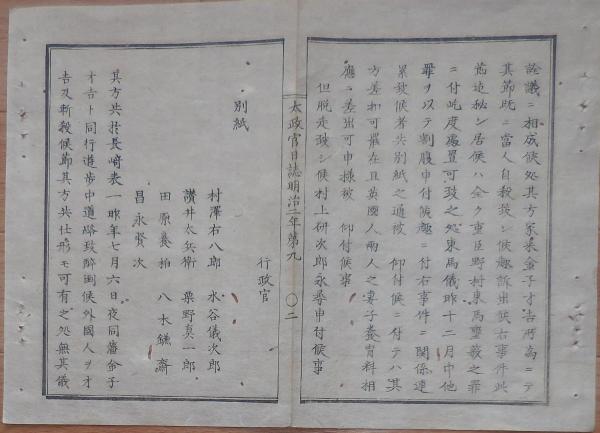 詮議ニ相成候処其方家来金子才吉所為ニテ
其節既ニ当人自殺致シ候趣訴出候右事件此
荒迠秘シ居候ハ全ク重臣野村東馬壅蔽之罪
ニ付屹度處置可致之処東馬儀昨十二月中他
罪ヲ以テ割腹申付候趣ニ付右事件ニ関係連
累致候者共別紙之通被　仰付候ニ付テハ其
方差扣可罷在且英國人両人之妻子養育料相
應ニ差出可申様被　仰付候事
但脱走致シ候村上研次郎永尋申付候事
太政官日誌明治二年第九　〇二
行政官
別紙
村澤右八郎　水谷儀次郎
讃井太兵衛　粟野真一郎
田原養柏　八木鐮齋
昌永賢次
其方共於長崎表一昨年七月六日夜同藩金子
才吉ト同行遊歩中道路致酔囲候外國人ヲオ
吉及斬殺候節其方共仕形モ可有之処無其儀